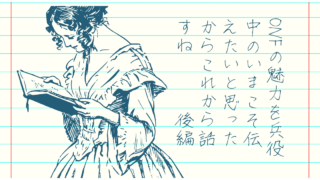 ONFの魅力を兵役
中のいまこそ伝
えたいと思った
からこれから話
すね　後編